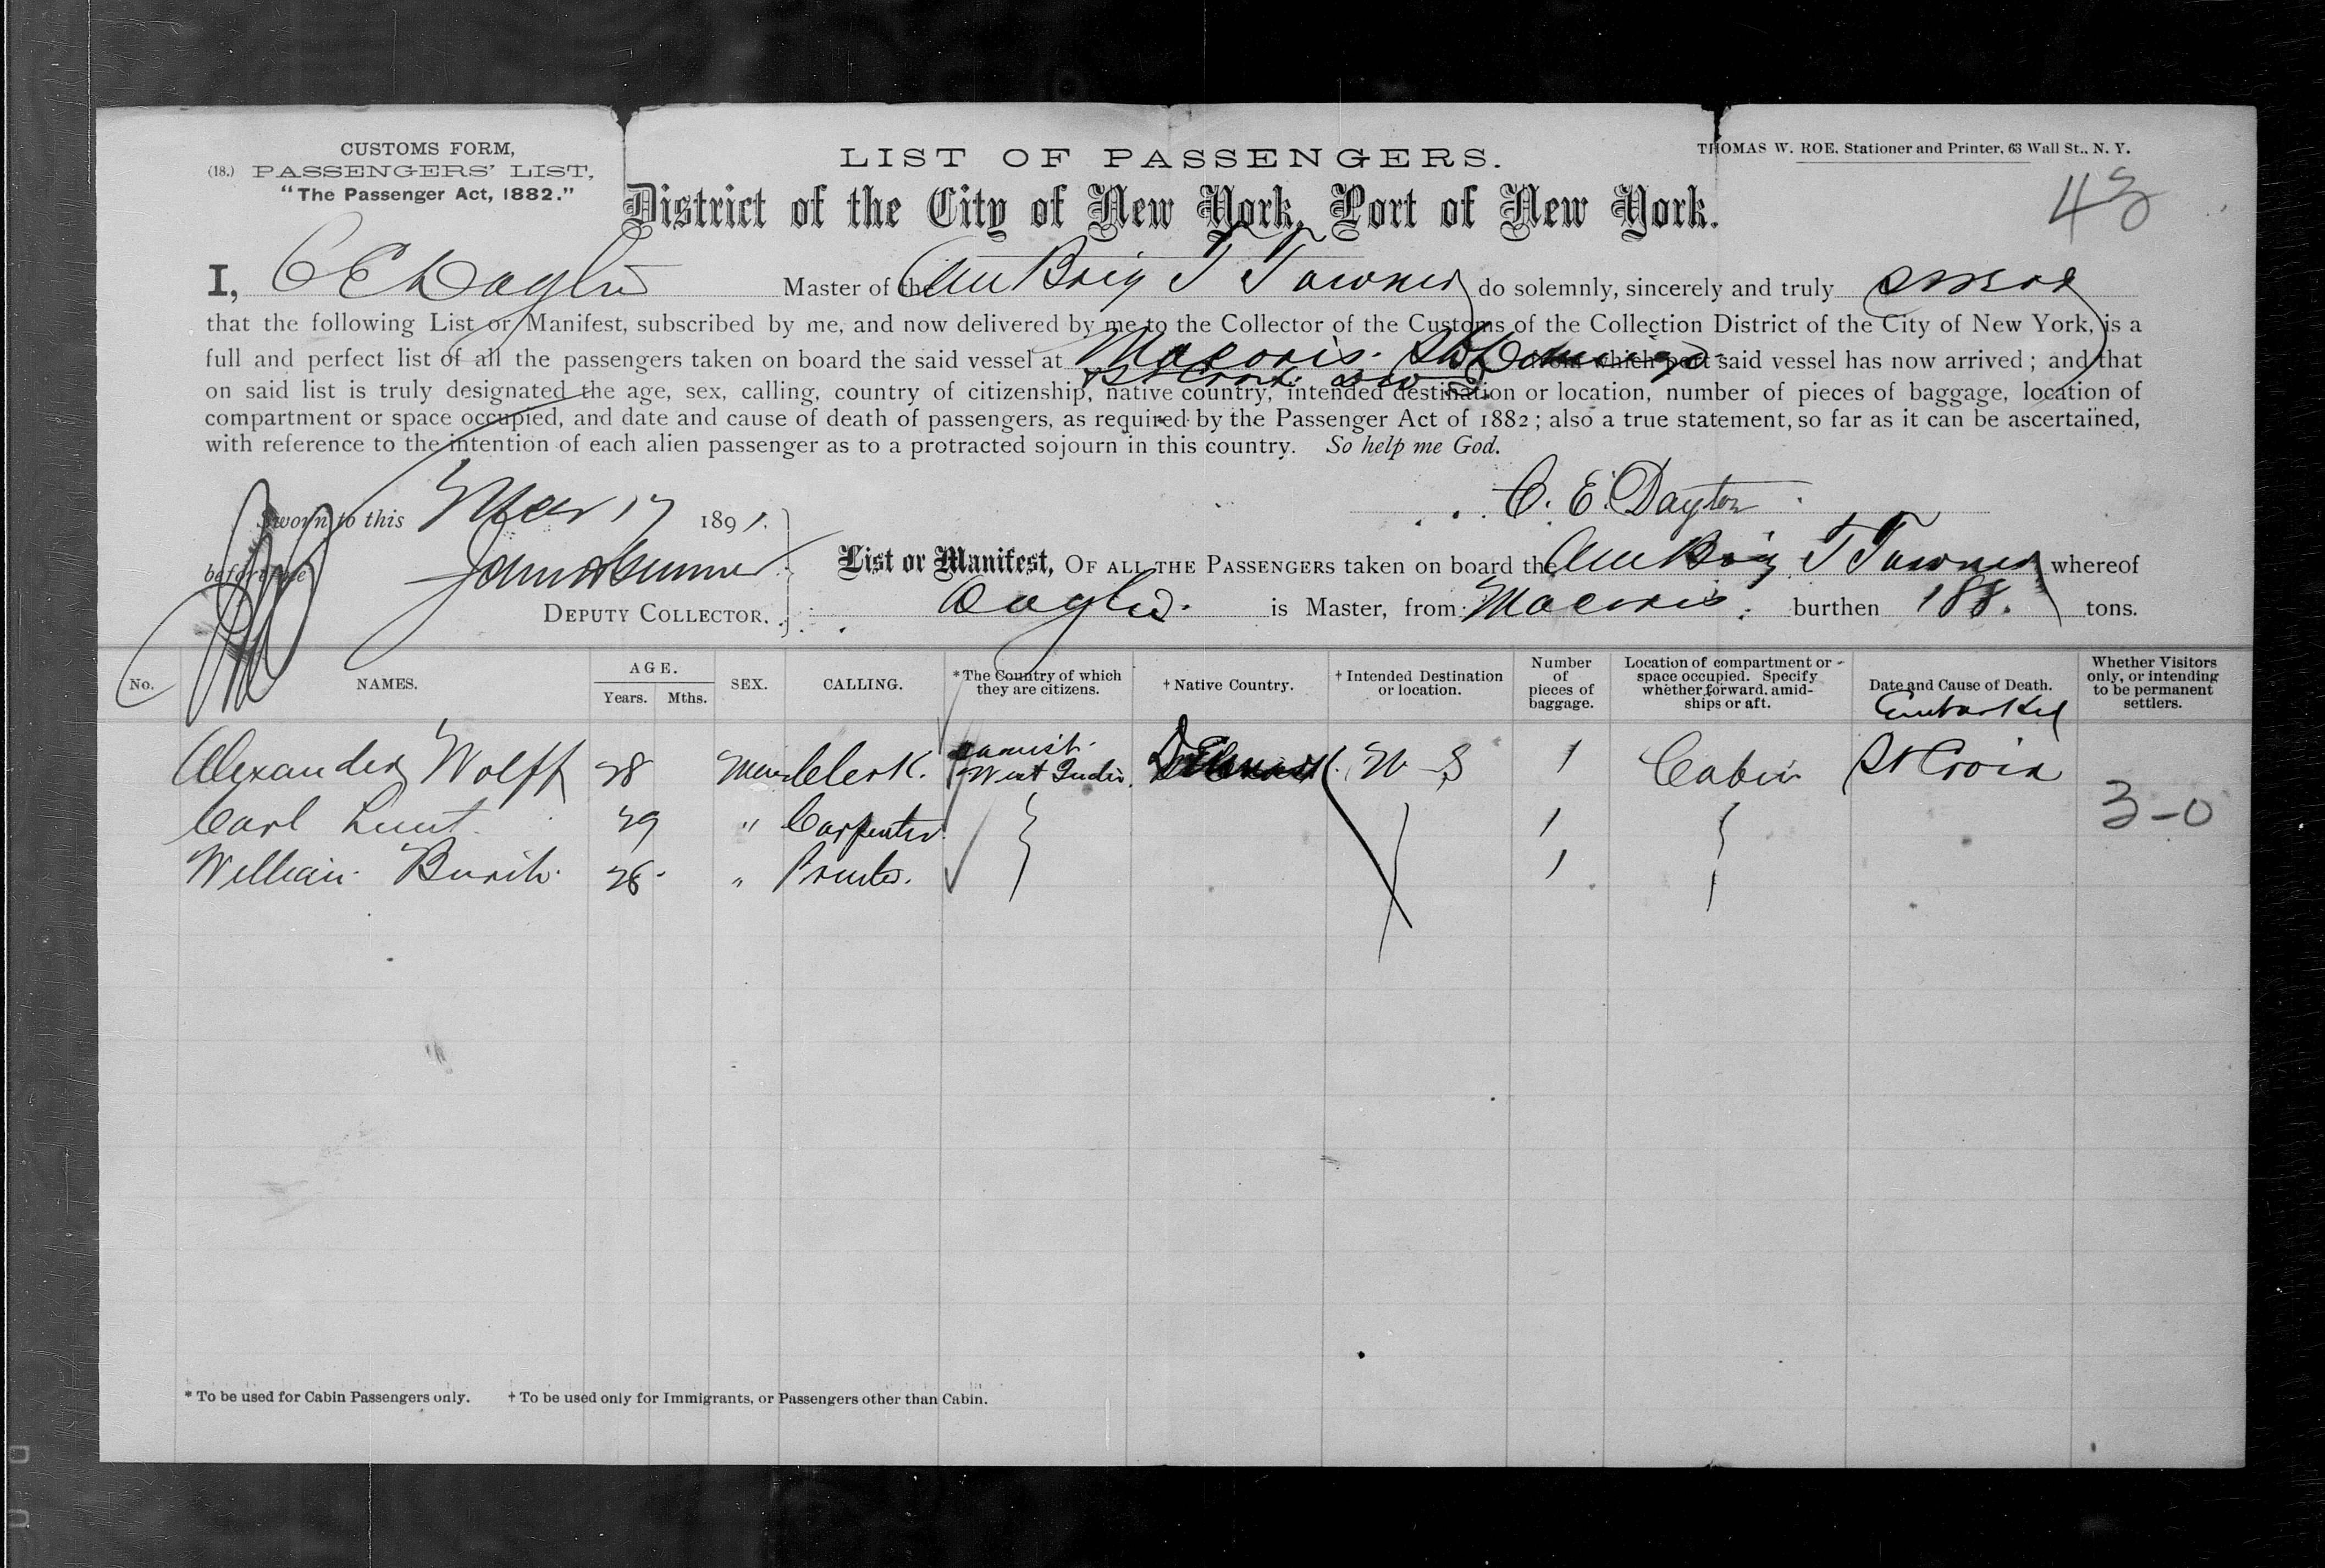 CUSTOMS FORM,
(18.) PASSENGERS' LIST,
"The Passenger Act, 1882."
LIST OF PASSENGERS.
THOMAS W. ROE, Stationer and Printer, 63 Wall St., N. Y.
District of the City of New York, Port of New York.
43
I, C E Dayton Master of the Am Brig T Towner do solemnly, sincerely and truly swear
that the following List or Manifest, subscribed by me, and now delivered by me to the Collector of the Customs of the Collection District of the City of New York, is a
full and perfect list of all the passengers taken on board the said vessel at Macoris. St Domingo from which port said vessel has now arrived; and that
St Croix
on said list is truly designated the age, sex, calling, country of citizenship, native country, intended destination or location, number of pieces of baggage, location of
compartment or space occupied, and date and cause of death of passengers, as required by the Passenger Act of 1882; also a true statement, so far as it can be ascertained,
with reference to the intention of each alien passenger as to a protracted sojourn in this country. So help me God.
C. E. Dayton
Sworn to this Mar 17 1891.
before me
DEPUTY COLLECTOR.
List or Manifest, OF ALL THE PASSENGERS taken on board the Am Brig T Towner whereof
Dayton. is Master, from Macoris. burthen 188. tons.
No. NAMES. AGE. Years. Mths. SEX. CALLING. *The Country of which they are citizens. †Native Country. †Intended Destination or location. Number of pieces of baggage. Location of compartment or space occupied. Specify whether forward, amidships or aft. Date and Cause of Death. Whether Visitors only, or intending to be permanent settlers.
Embarked
Alexander Wolff 28 Clerk. Danish West Indies U S 1 Cabin St Croix
3-0
Carl 29 " Carpenter 1
William 26 " 1
* To be used for Cabin Passengers only. † To be used only for Immigrants, or Passengers other than Cabin.